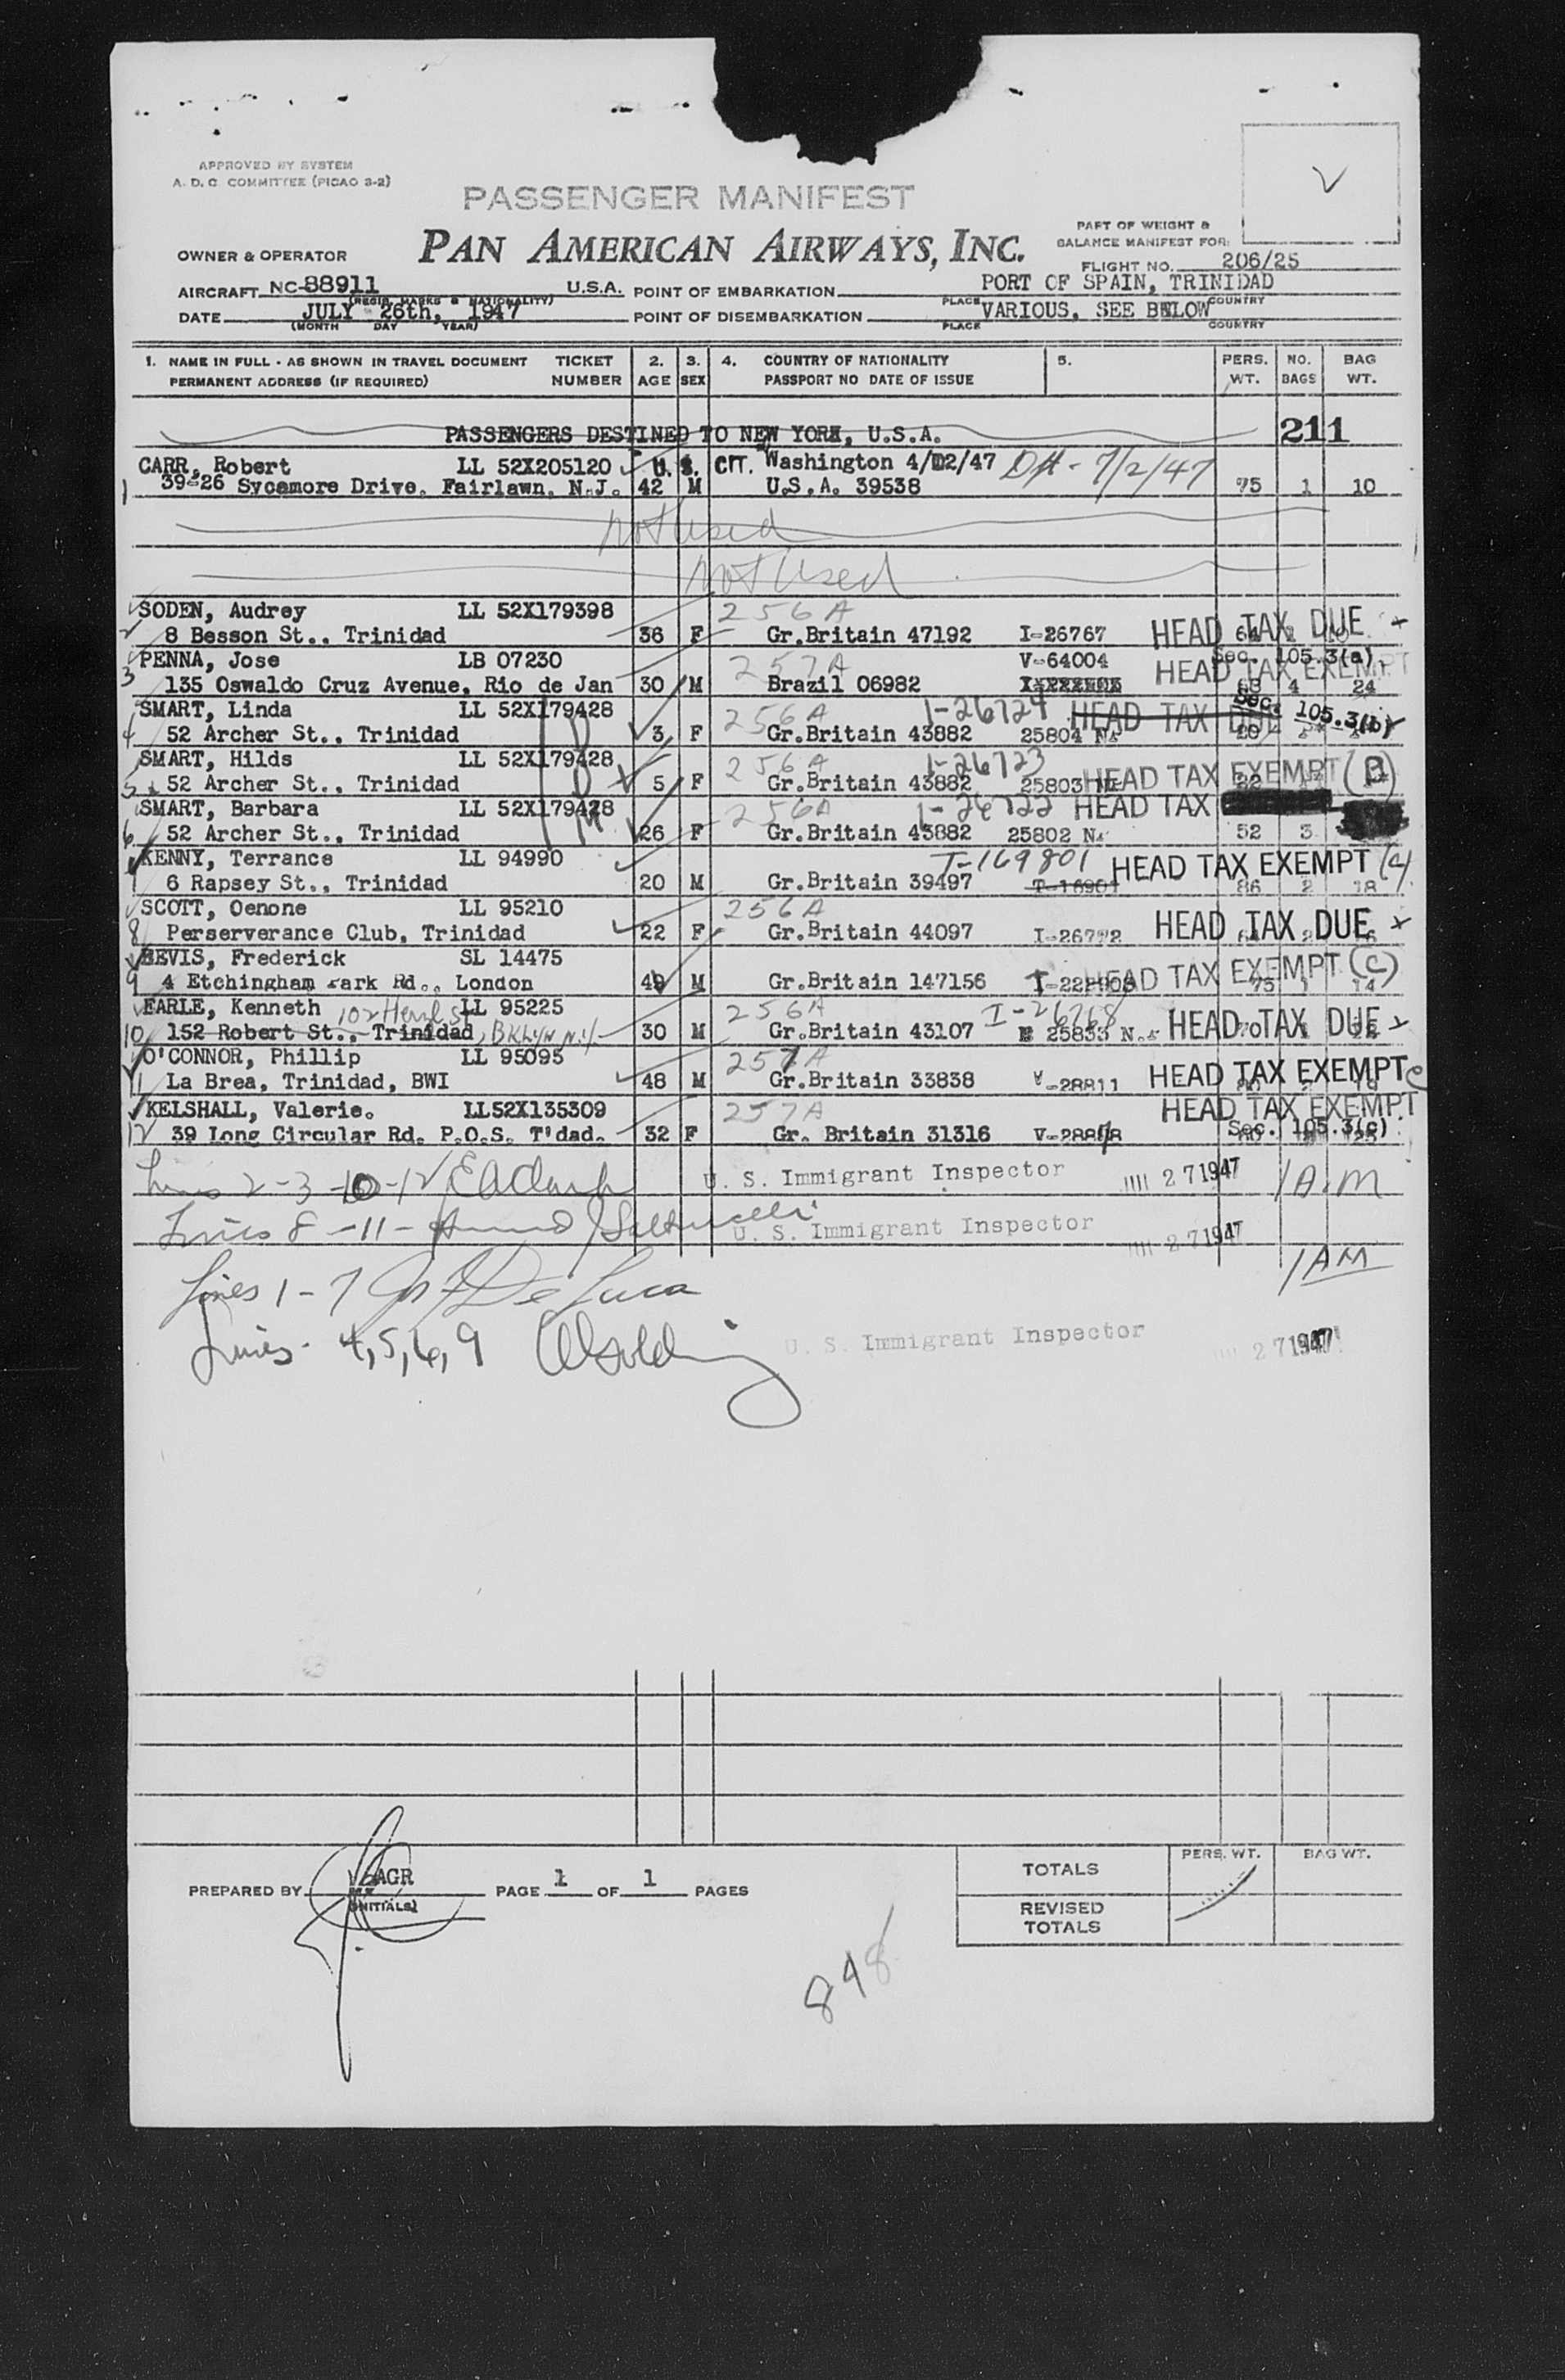 APPROVED BY SYSTEM
A. D. C. COMMITTEE (PICAO 3-2)
PASSENGER MANIFEST
PAN AMERICAN AIRWAYS, INC.
PART OF WEIGHT &
BALANCE MANIFEST FOR:
OWNER & OPERATOR
FLIGHT NO. 206/25
AIRCRAFT NC-88911 U.S.A. POINT OF EMBARKATION PORT OF SPAIN, TRINIDAD
(REGIS. MARKS & NATIONALITY) PLACE COUNTRY
DATE JULY 26th, 1947 POINT OF DISEMBARKATION VARIOUS, SEE BELOW
(MONTH DAY YEAR) PLACE COUNTRY
1. NAME IN FULL - AS SHOWN IN TRAVEL DOCUMENT TICKET 2. 3. 4. COUNTRY OF NATIONALITY 5. PERS. NO. BAG
PERMANENT ADDRESS (IF REQUIRED) NUMBER AGE SEX PASSPORT NO DATE OF ISSUE WT. BAGS WT.
PASSENGERS DESTINED TO NEW YORK, U.S.A. 211
CARR, Robert LL 52X205120 U.S. CIT. Washington 4/ 2/47 7/2/47
1 39-26 Sycamore Drive. Fairlawn. N.J. 42 M U.S.A. 39538 75 1 10
Not Used
Not Used
SODEN, Audrey LL 52X179398 256A
2 8 Besson St., Trinidad 36 F Gr.Britain 47192 I-26767 HEAD TAX DUE
PENNA, Jose LB 07230 257A V-64004 Sec. 105.3(a)
3 135 Oswaldo Cruz Avenue, Rio de Jan 30 M Brazil 06982 HEAD TAX EXEMPT 68 4 24
SMART, Linda LL 52X179428 256A I-26724 HEAD TAX DUE Sec. 105.3(b)
4 52 Archer St., Trinidad 3 F Gr.Britain 43882 25804 N.
SMART, Hilds LL 52X179428 256A I-26723
5 52 Archer St., Trinidad 5 F Gr.Britain 43882 25803 HEAD TAX EXEMPT (B)
SMART, Barbara LL 52X179428 256A I-26722 HEAD TAX
6 52 Archer St., Trinidad 26 F Gr.Britain 43882 25802 N. 52 3
KENNY, Terrance LL 94990 T-169801 HEAD TAX EXEMPT (c)
7 6 Rapsey St., Trinidad 20 M Gr.Britain 39497 T-16901 86 2 18
SCOTT, Oenone LL 95210 256A
8 Perserverance Club, Trinidad 22 F Gr.Britain 44097 I-26772 HEAD TAX DUE
BEVIS, Frederick SL 14475
9 4 Etchingham Park Rd., London 49 M Gr.Britain 147156 HEAD TAX EXEMPT (C) 75 1 14
EARLE, Kenneth 102 St LL 95225 256A I-26768
10 152 Robert St., Trinidad, BKLYN N.Y. 30 M Gr.Britain 43107 25833 N. HEAD TAX DUE
O'CONNOR, Phillip LL 95095 257A
11 La Brea, Trinidad, BWI 48 M Gr.Britain 33838 V-28811 HEAD TAX EXEMPT c
KELSHALL, Valerie. LL52X135309 257A HEAD TAX EXEMPT
12 39 Long Circular Rd. P.O.S. T'dad. 32 F Gr. Britain 31316 Sec. 105.3(c)
Lines 2-3-10-12 U. S. Immigrant Inspector 27 1947 1 A.M
Lines 8-11- U. S. Immigrant Inspector 27 1947
1 AM
Lines 1-7 De Luca
Lines 4,5,6,9 U. S. Immigrant Inspector 27 1947
PREPARED BY AGR PAGE 1 OF 1 PAGES
(INITIALS)
PERS. WT. BAG WT.
TOTALS
REVISED
TOTALS
848